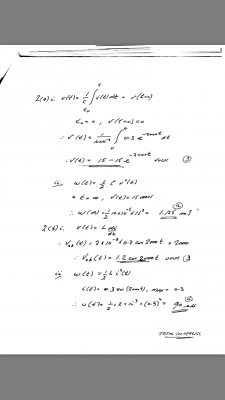 2(a) i. v(t) = 1/C ∫ i(t) dt + v(t=0)
t₀ = 0, v(t=0) = 0
∴ v(t) = 1/10×10⁻⁶ ∫ 0.3 e^-2000t dt
∴ v(t) = 15 - 15 e^-2000t volts (3)
ii. w(t) = 1/2 C v²(t)
at t = ∞, v(t) = 15 volts
∴ w(∞) = 1/2 × 10×10⁻⁶ × 15² = 1.125 mJ
2(b) i. v(t) = L di/dt
∴ Vab(t) = 2×10⁻³ × 0.3 cos 2000t × 2000
∴ Vab(t) = 1.2 cos 2000t volts (3
ii. w(t) = 1/2 L i²(t)
i(t) = 0.3 sin(2000t), max = 0.3
∴ w(t) = 1/2 × 2×10⁻³ × (0.3)² = 90 μJ
TOTAL 10 MARKS